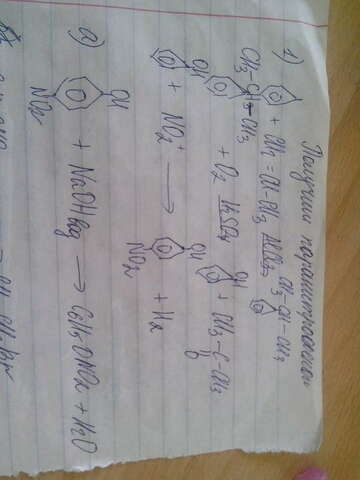 Получим паранитрофенол
1) + CH₂ = CH-CH₃ AlCl₃ → CH₃-CH-CH₃
CH₃-CH-CH₃ + O₂ H₂SO₄ → OH + CH₃-C-CH₃
O
OH + NO₂⁺ → OH + H₂
NO₂
а) OH + NaOH → C₆H₅ONO₂ + H₂O
NO₂